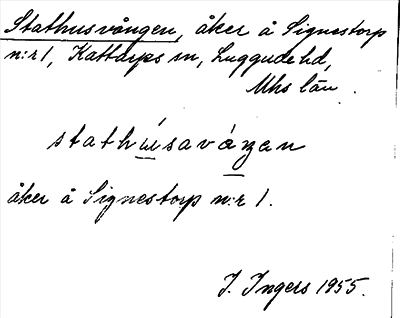 Stathusvången, åker å Signestorp
n:r 1, Kattarps sn, Luggude hd,
Mhs län.
stathúsavázan
åker å Signestorp n:r 1.
J. Ingers 1955.